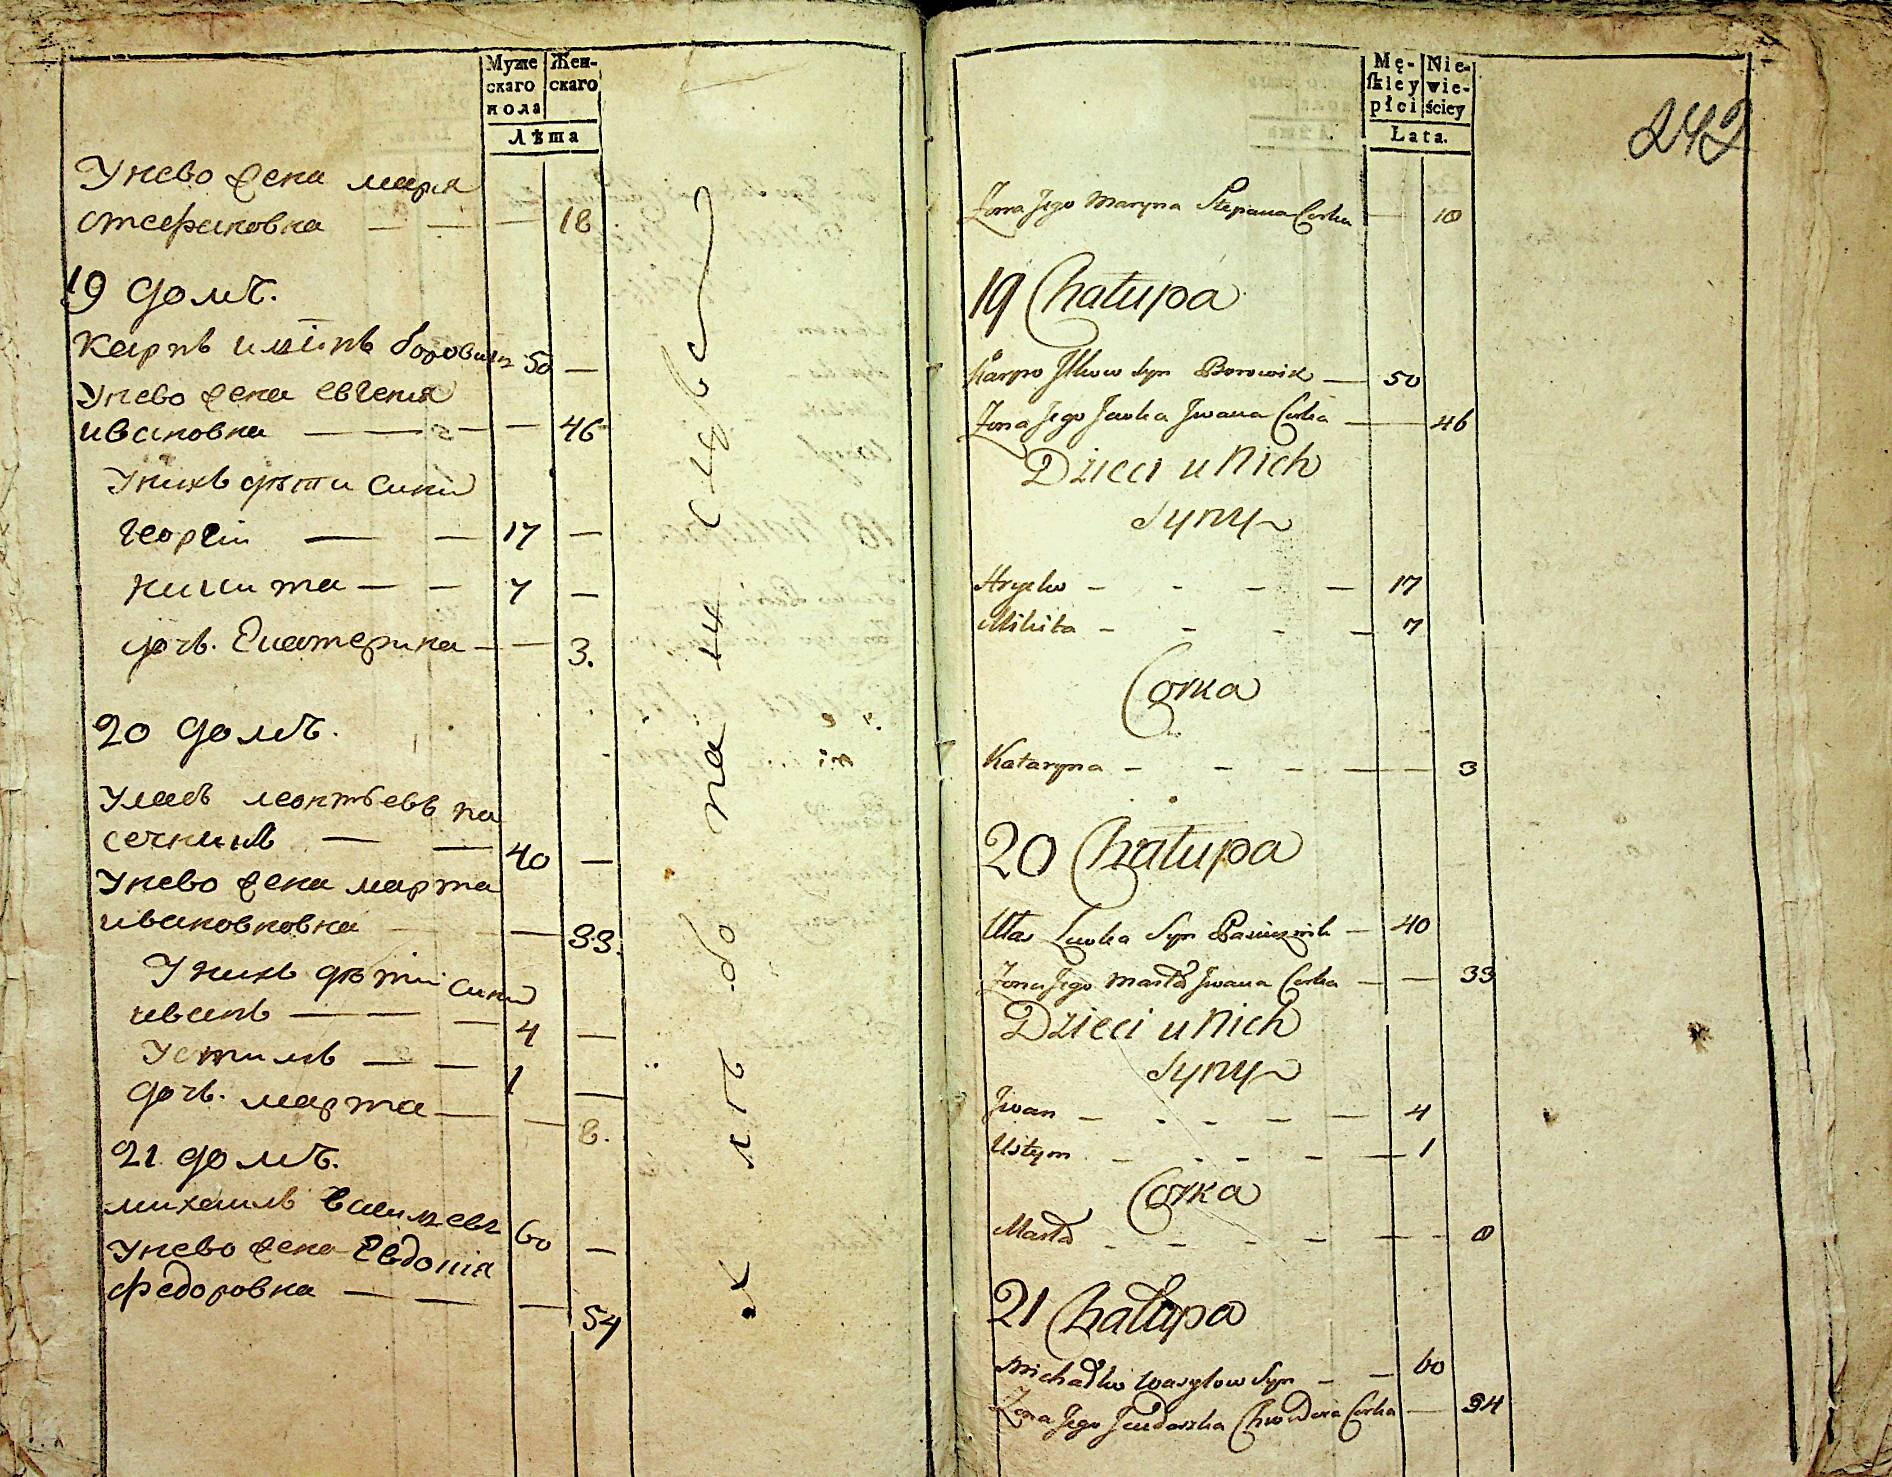 Муже Жен-
скаго скаго
пола
Лѣта
Унево жена марія
стефановка — — — 18
19 домъ.
Карпъ илинъ боровикъ 50 —
Унево жена евгенія
ивановна — — — — 46
Унихъ дѣти сини
Георгіи — — 17 —
никита — — 7 —
дочь. Екатерина — — 3.
20 домъ.
Уласъ леонтьевъ па
сечникъ — — 40 —
Унево жена марта
ивановновна — — 33.
Унихъ дѣти сини
иванъ — — — 4 —
Устимъ — — 1 —
дочь. марта — — 8.
21 домъ.
михаилъ Василіевъ 60 —
Унево жена Евдокія
федоровна — — — 54
Mę- Nie-
skiey wie-
płci ściey
Lata.
242
Zona Jego Maryna Stepana Corka — 18
19 Chałupa
Karpo Ilkow Syn Borowik — 50
Zona Jego Jewka Jwana Corka — 46
Dzieci u Nich
Syny
Hryćko - - - — 17
Mikita - - - — 7
Corka
Kataryna - - - — — 3
20 Chałupa
Ułas Lewka Syn Pasiecznik — 40
Zona Jego Marta Jwana Corka — — 33
Dzieci u Nich
Syny
Jwan — - - - — 4
Ustym - - - — — 1
Corka
Marta - - - — — - 8
21 Chałupa
Michałko Wasylow Syn — — 60
Zona Jego Jewdoszka Chwedora Corka — 54